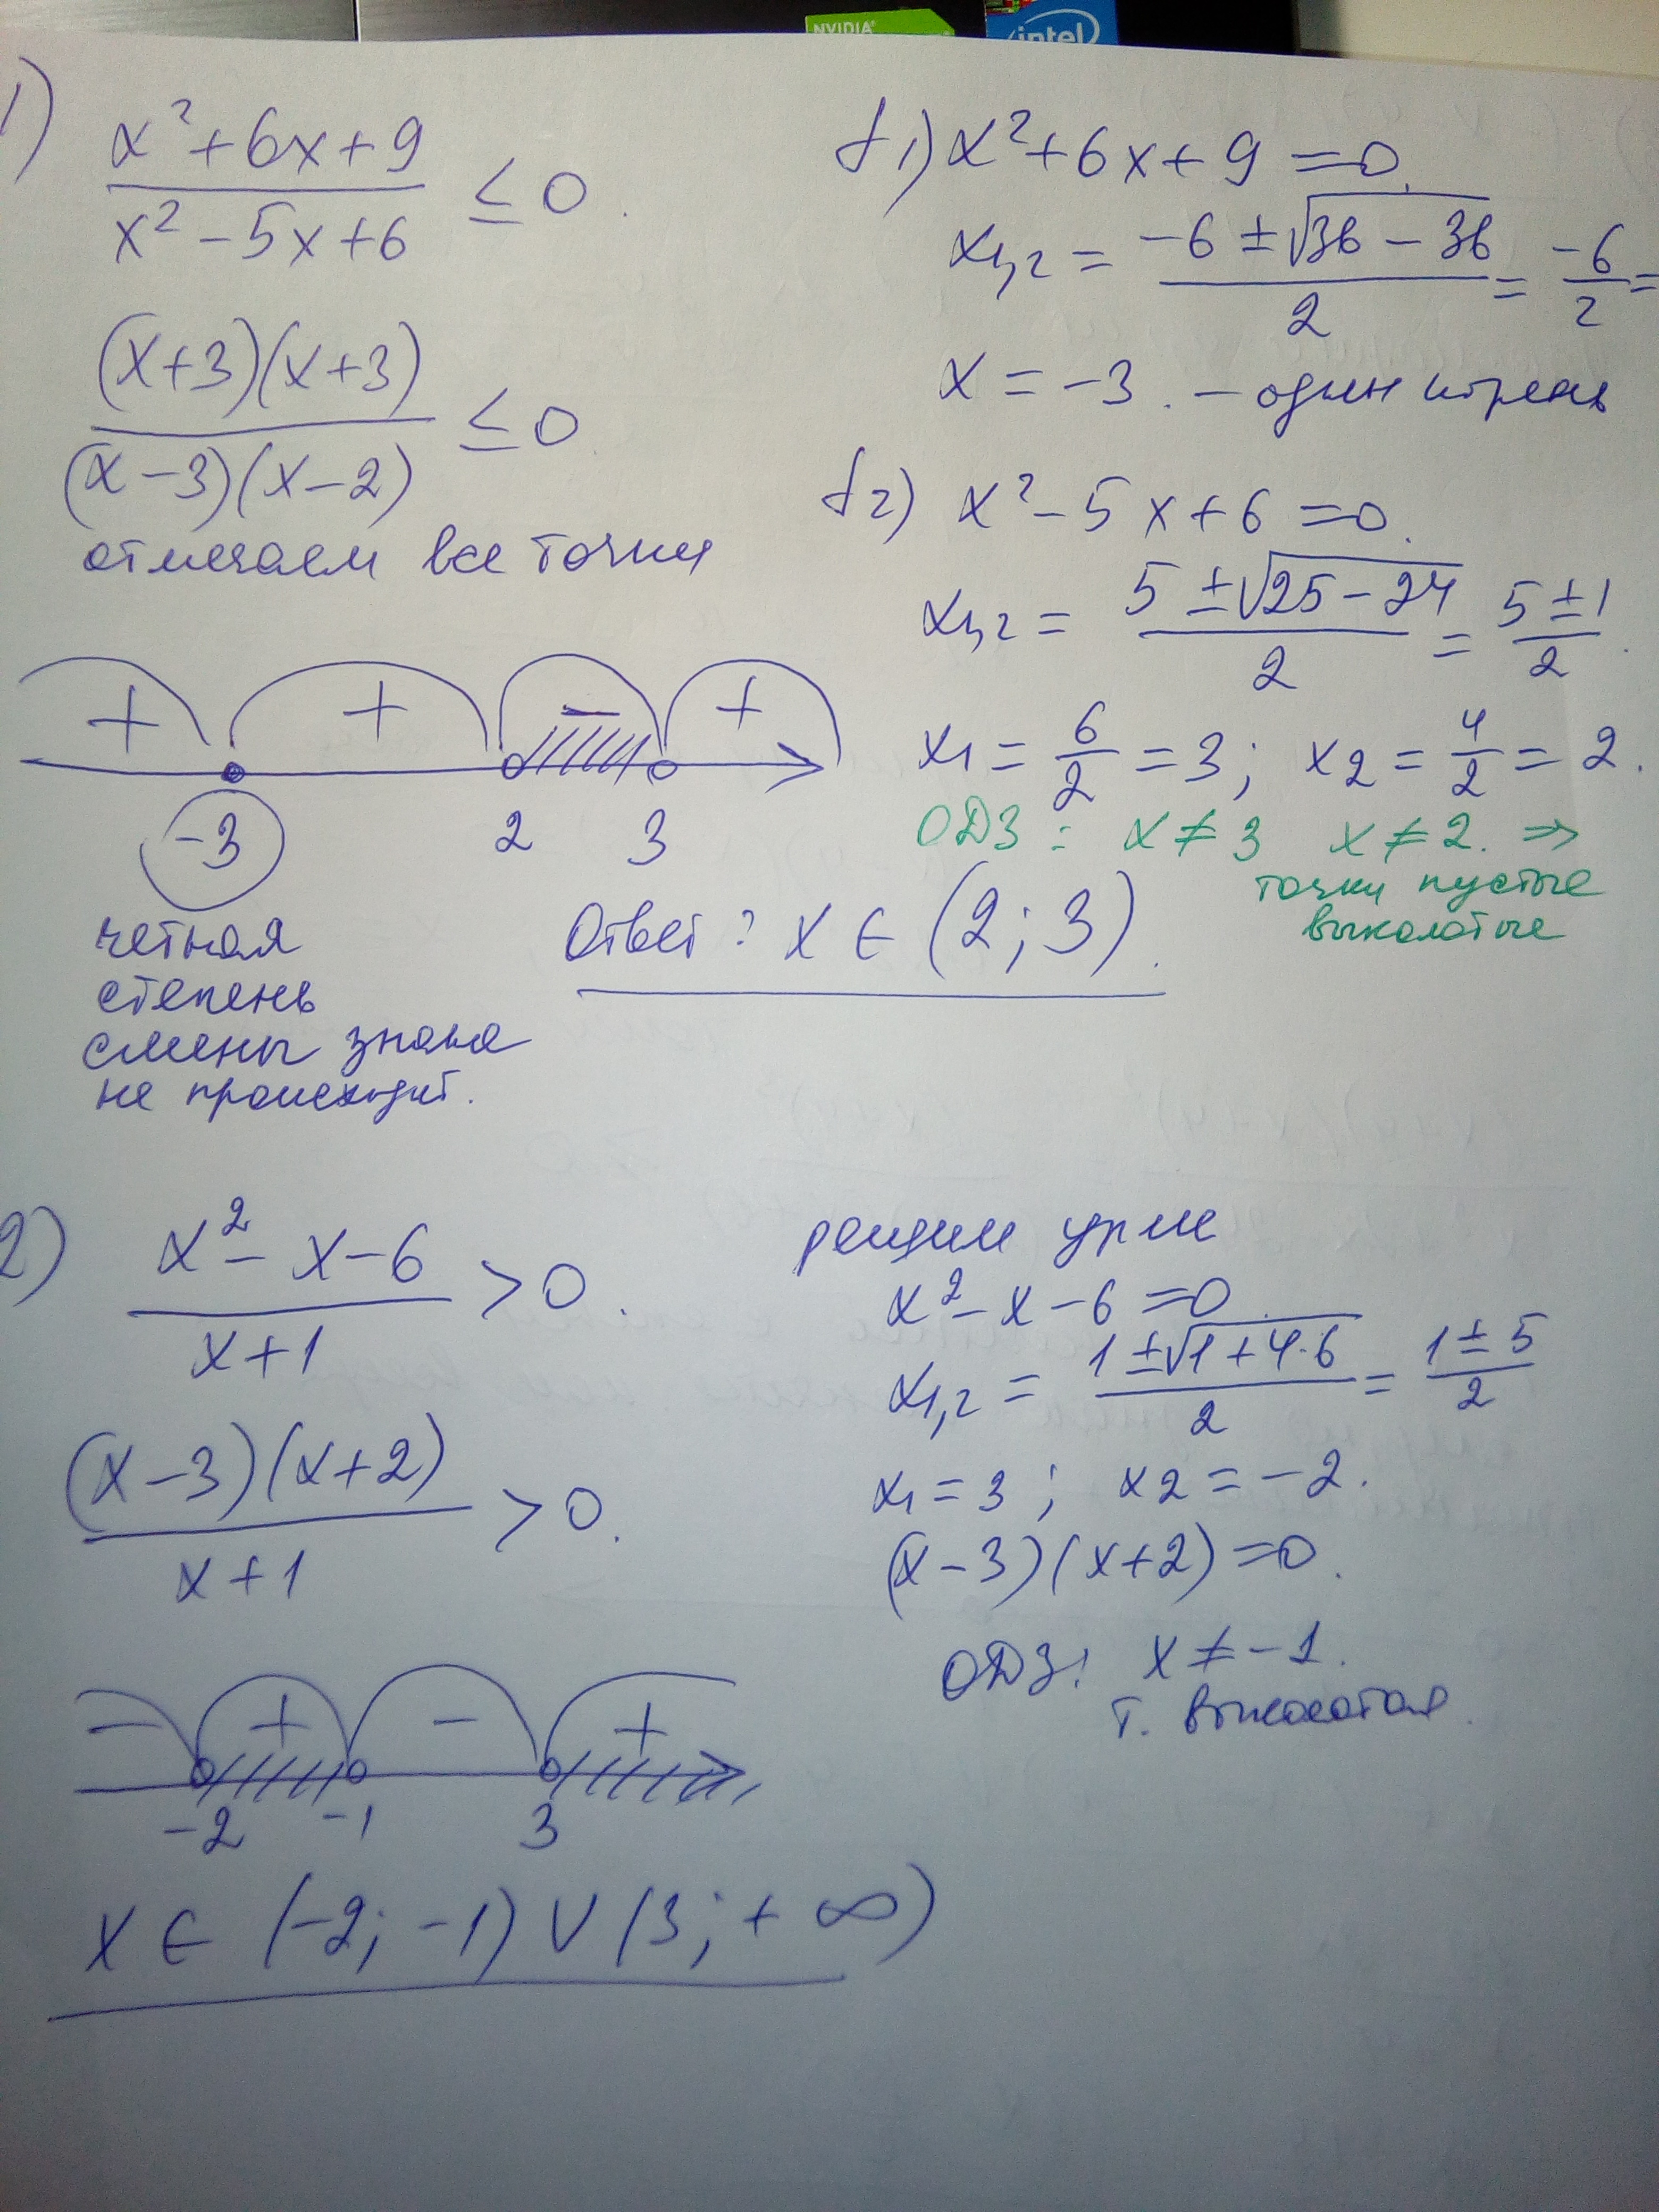 NVIDIA
intel
1) (x²+6x+9)/(x²-5x+6) ≤ 0.
((x+3)(x+3))/((x-3)(x-2)) ≤ 0
отмечаем все точки
+ + - +
-3 2 3
четная
степень
смены знака
не происходит.
f1) x²+6x+9=0.
x1,2 = (-6±√(36-36))/2 = -6/2 =
x = -3. - один корень
f2) x²-5x+6=0.
x1,2 = (5±√(25-24))/2 = (5±1)/2.
x1 = 6/2 = 3; x2 = 4/2 = 2.
ОДЗ: x≠3 x≠2. ⇒
точки пустые
выколотые
Ответ: x ∈ (2; 3).
2) (x²-x-6)/(x+1) > 0.
((x-3)(x+2))/(x+1) > 0.
- + - +
-2 -1 3
x ∈ (-2; -1) ∨ (3; +∞)
решим ур-ие
x²-x-6=0.
x1,2 = (1±√(1+4·6))/2 = (1±5)/2
x1=3; x2=-2.
(x-3)(x+2)=0.
ОДЗ: x≠-1.
т. выколотая.